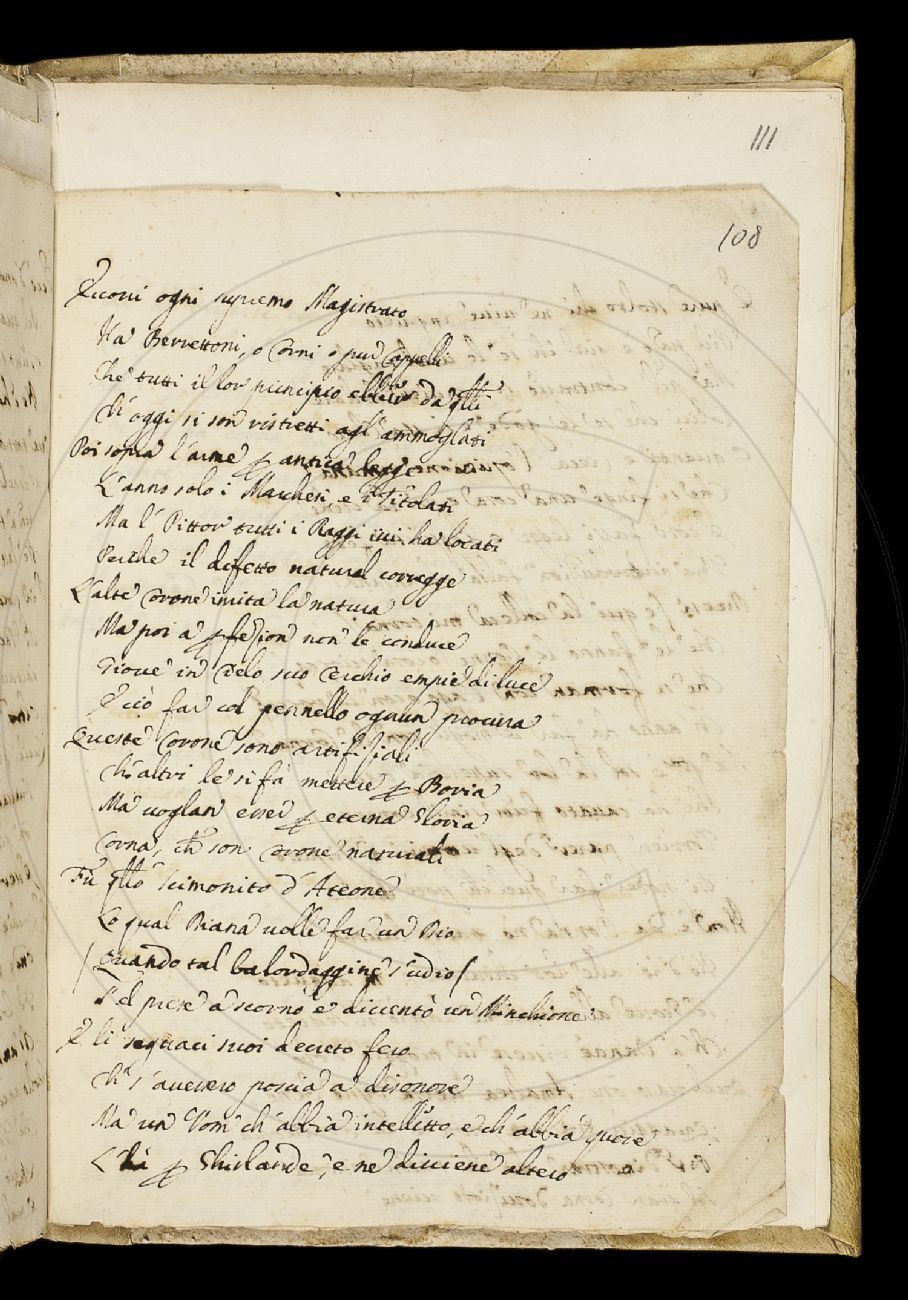 111
108
E uoni ogni supremo Magistrato
Ha' Berrettoni, o Corni o pur Cappelli
Che tutti il lor principio ebber' da q̃lli
Ch' oggi si son' ristretti agl' ammogliati
Poi sopra l'arme ꝑ antica legge
L'anno solo i Marchesi, e i Titolati
Ma l' Pittor' tutti i Raggi iui ha locati
Perche il difetto natural corregge
L'alte Corone imita la natura
Ma poi a' ꝑfezion' non' le conduce
Gioue in Cielo suo Cerchio empie di luce
E ciò far col pennello ognun' procura
Queste Corone sono artifiziali
Ch' altri le si fà mettere ꝑ Boria
Ma uoglan' esser ꝑ eterna Gloria
Corna, ch̃ son' Corone naturali
Fù q̃llo scimonito d'Ateone
Lo qual Diana uolle far un Dio
/ Quando tal balordaggine s'udio /
S'el prese a' scorno e diuentò un Minchione
E li seguaci suoi decreto fero
Ch' s'auessero poscia a' disonore
Ma un' Vom' ch' abbia intelletto, e ch' abbia quore
L'hà ꝑ Ghirlande, e ne diuiene altero